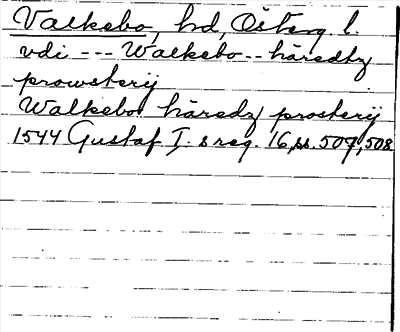 Valkebo, hd, Österg. l.
vdi --- Walkebo -- häredtz
prowsterij
Walkebo häredz prosterij
1544 Gustaf I:s reg. 16, ss. 507, 508